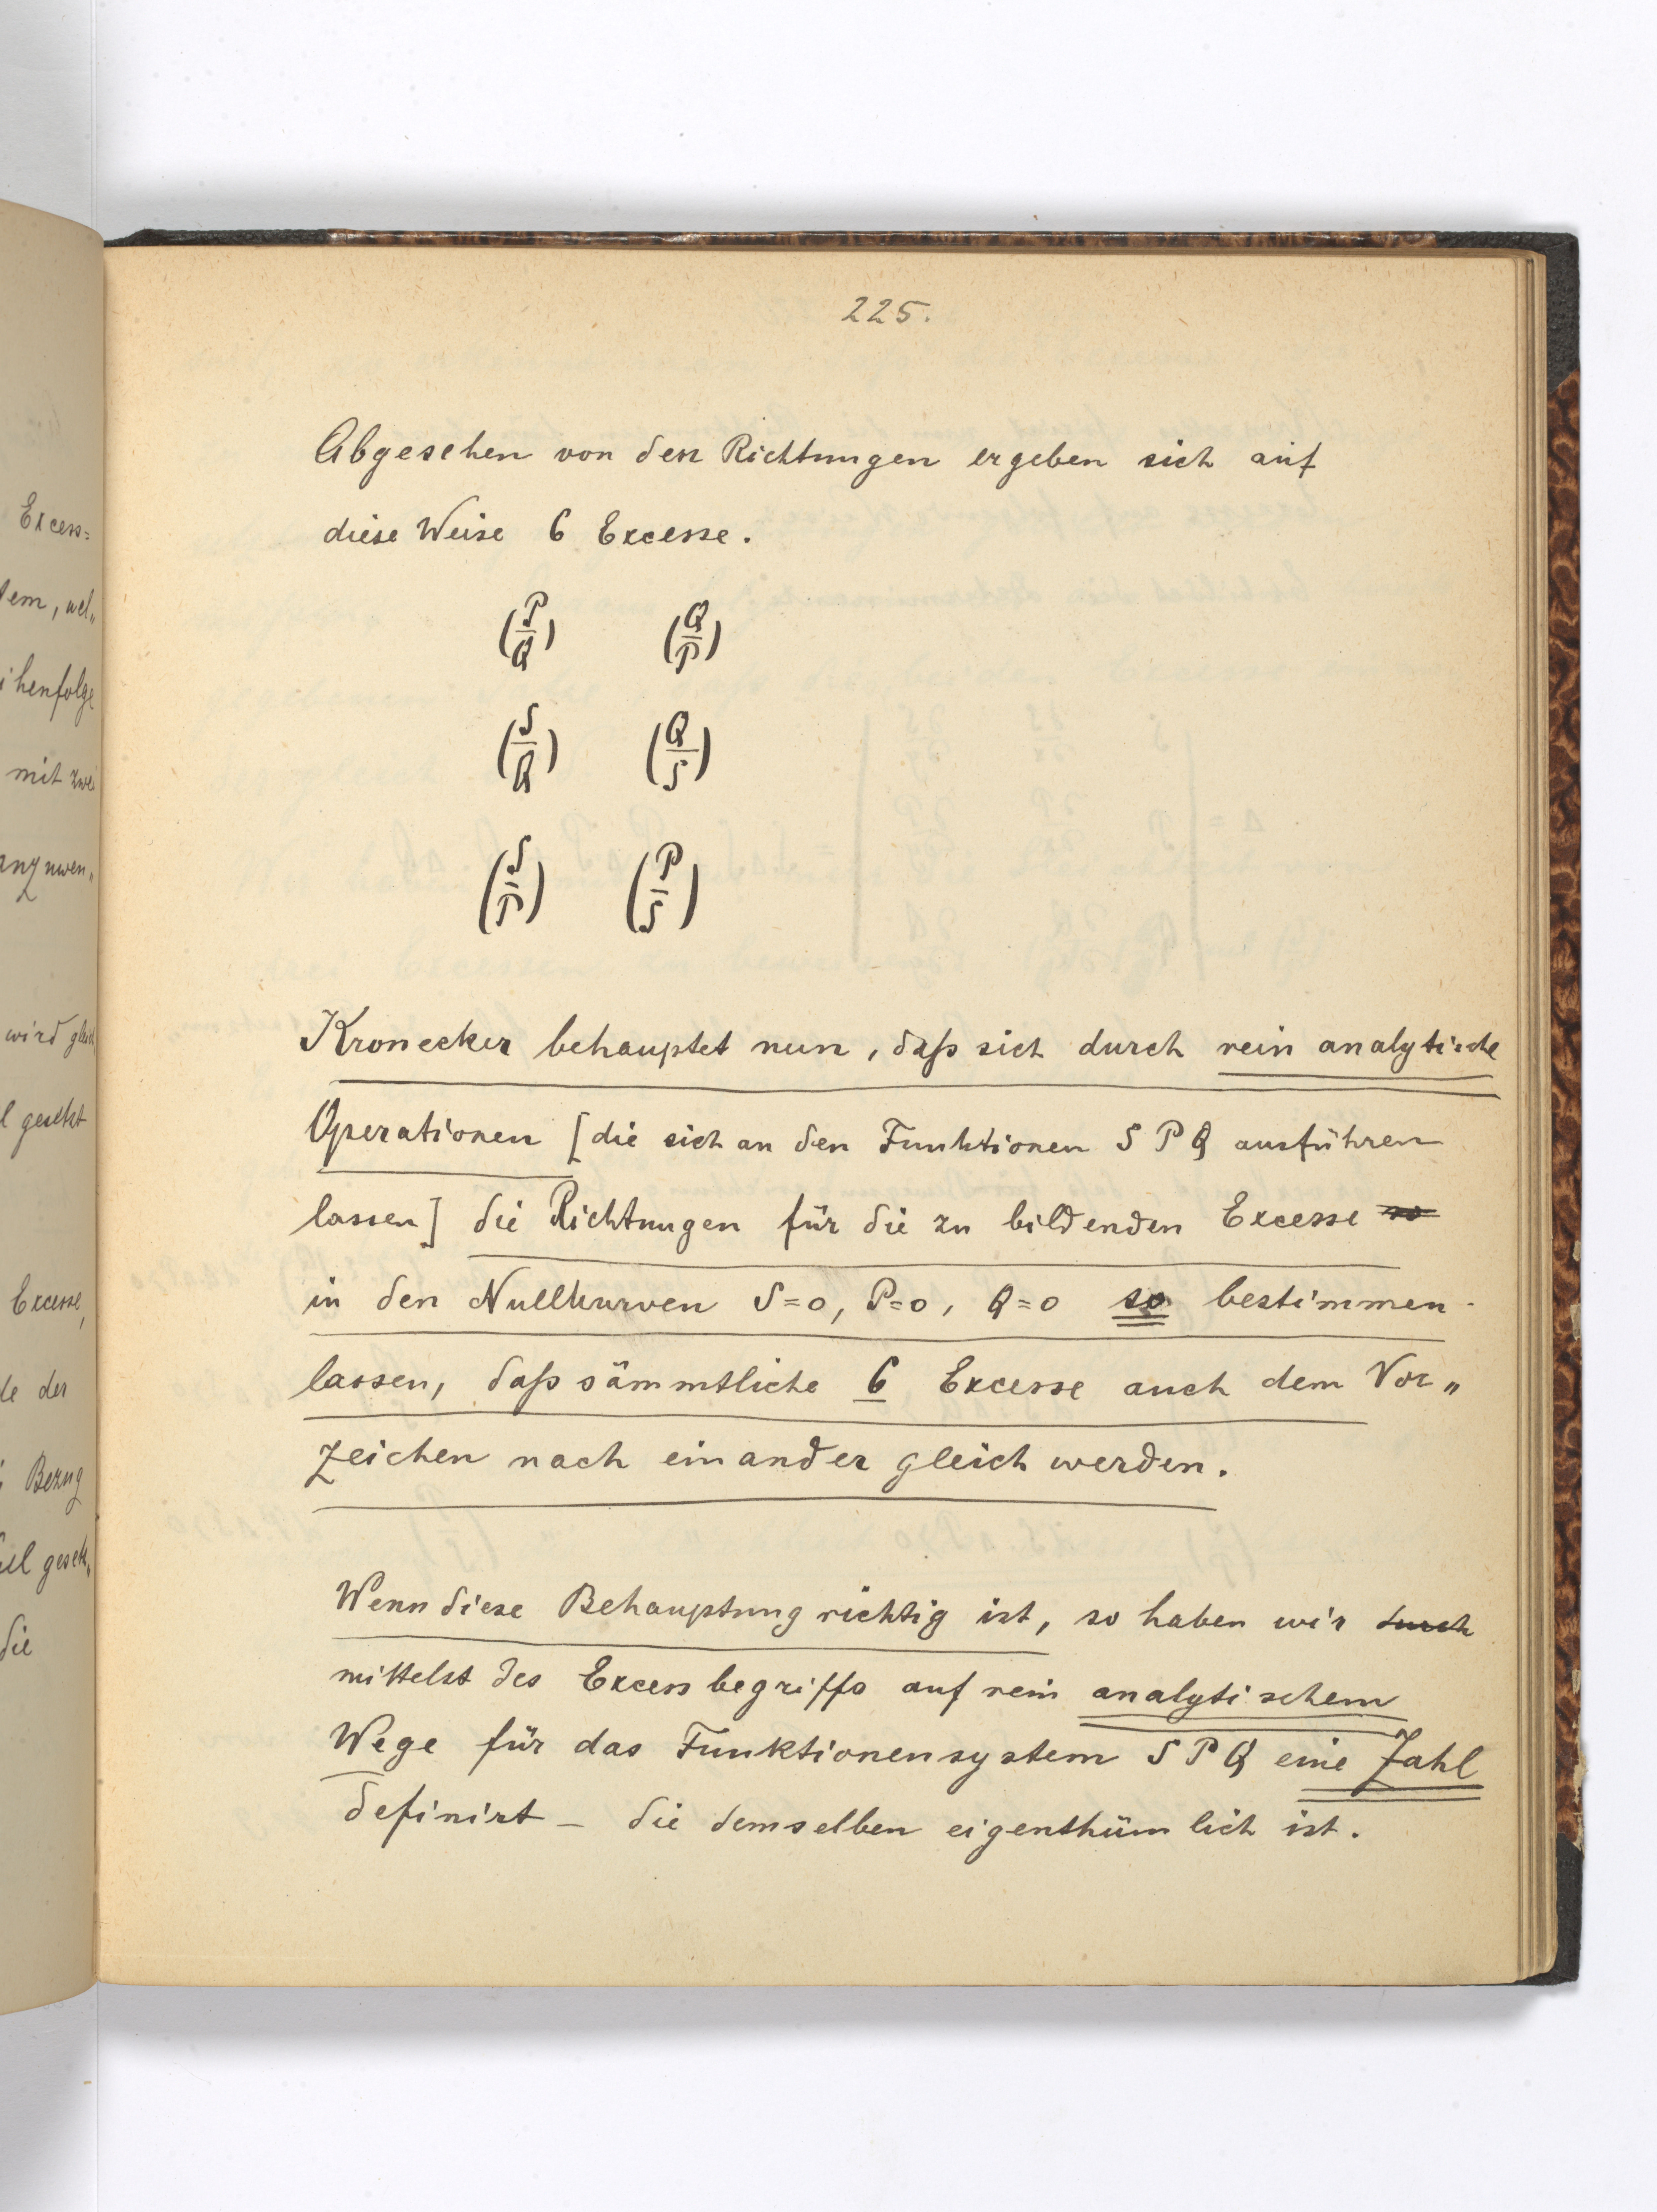 225.
Abgesehen von den Richtungen ergeben sich auf
diese Weise 6 Excesse.
(P/Q) (Q/P)
(S/Q) (Q/S)
(S/P) (P/S)
Kronecker behauptet nun, daß sich durch rein analytische
Operationen [die sich an den Funktionen S P Q ausführen
lassen] die Richtungen für die zu bildenden Excesse so
in den Nullkurven S=0, P=0, Q=0 so bestimmen
lassen, daß sämmtliche 6 Excesse auch dem Vor„
zeichen nach einander gleich werden.
Wenn diese Behauptung richtig ist, so haben wir durch
mittelst des Excessbegriffs auf rein analytischem
Wege für das Funktionensystem S P Q eine Zahl
definirt – die demselben eigenthümlich ist.
Excess=
mit zwei
wird gleich
gesetzt
Excesse,
der
Bezug
die